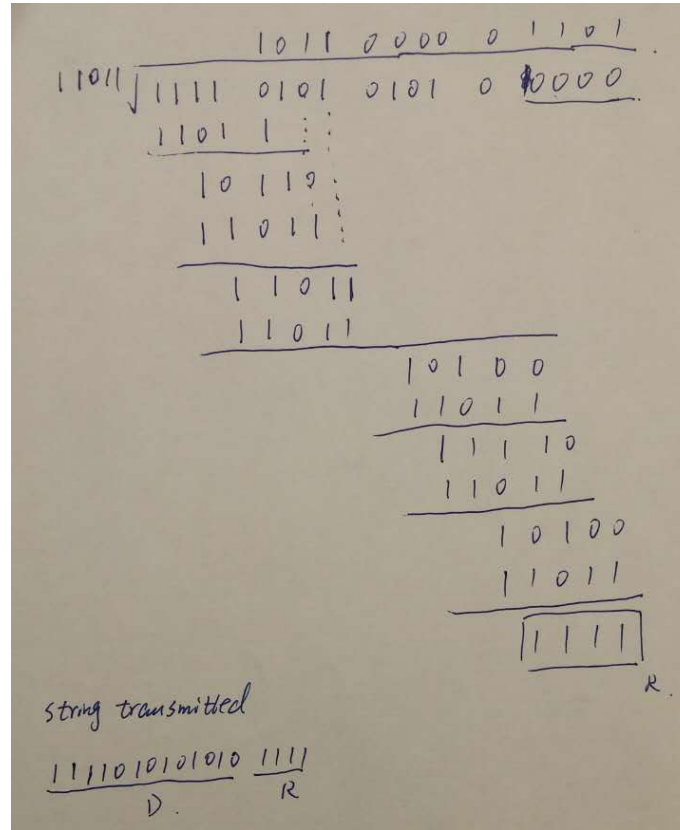 1011 0000 0 1101.
11011 1111 0101 0101 0 0000
1101 1
10110
11011
11011
11011
10100
11011
11110
11011
10100
11011
1111
R.
string transmitted
1111010101010 1111
D. R